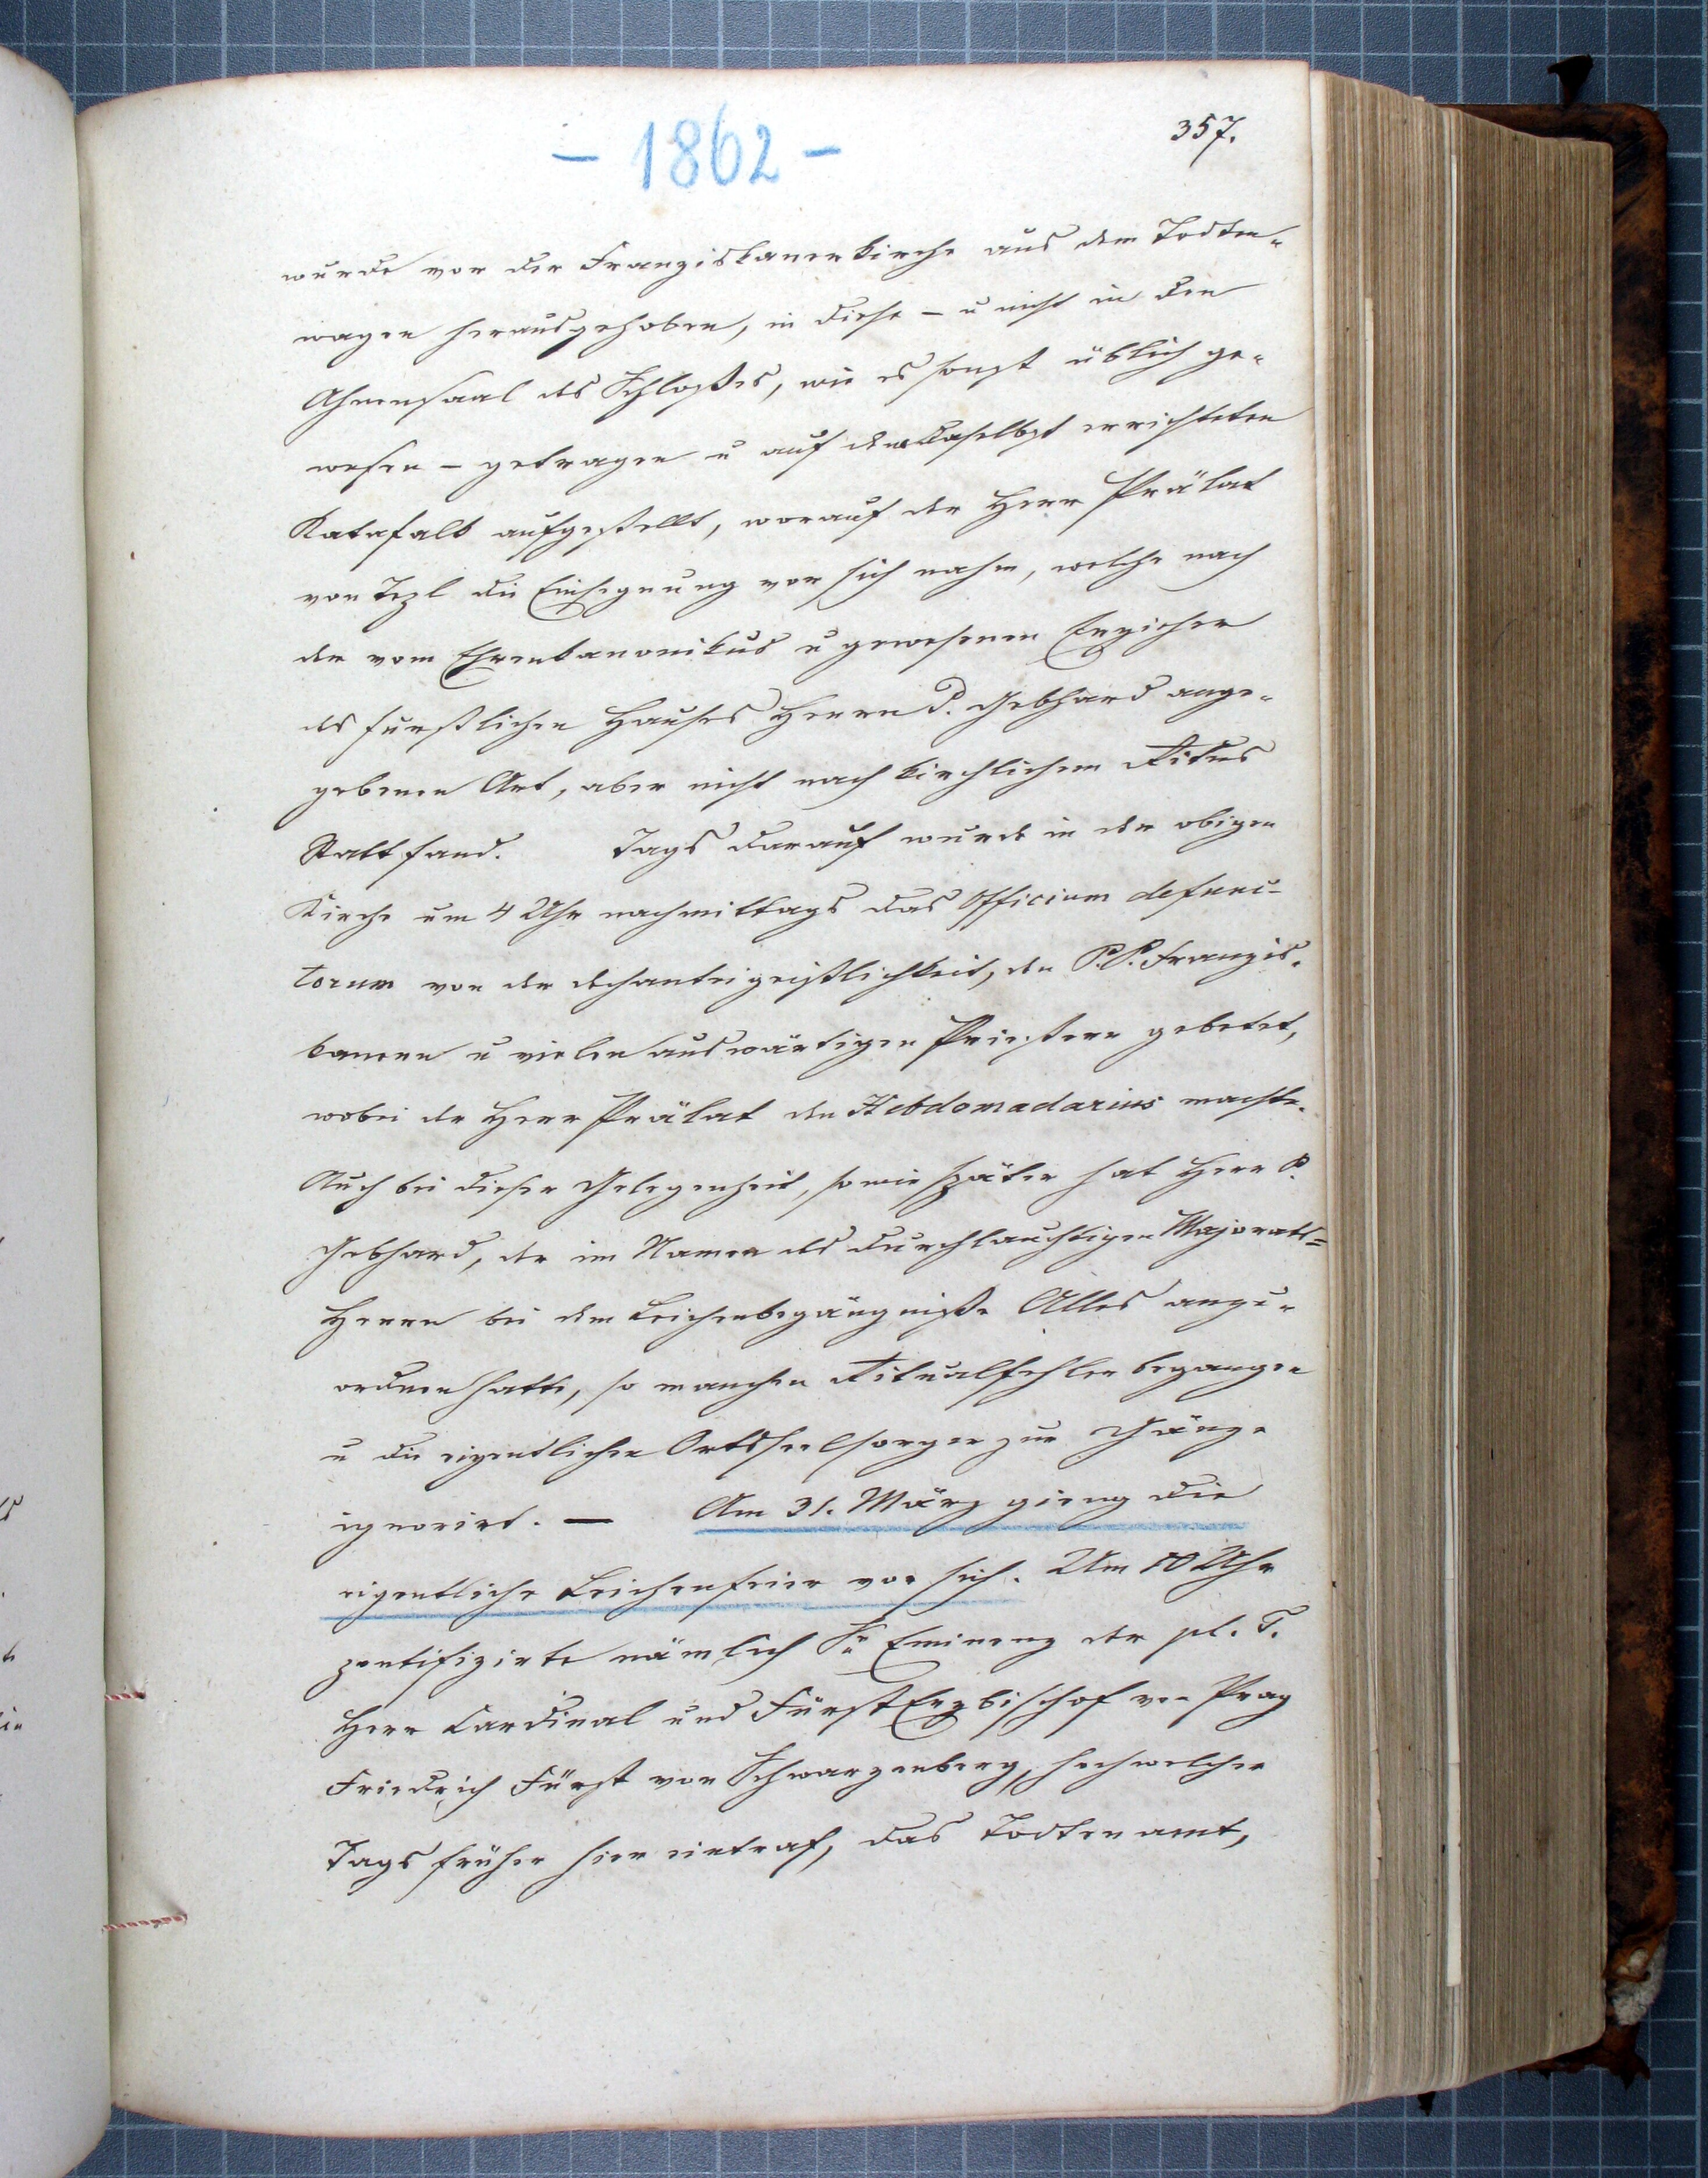 - 1862 -
357.
wurde vor der Franziskanerkirche aus dem Todten-
wagen herausgehoben, in diese - u nicht in den
Ahnensaal des Schloßes, wie es sonst üblich ge-
wesen - getragen u auf dem daselbst errichteten
Katafalk aufgestellt, worauf der Herr Prälat
von Tepl die Einsegnung vor sich nahm, welche nach
der vom Ehrenkanonikus u gewesenen Erzieher
des fürstlichen Hauses Herrn P. Gebhard ange-
gebenen Art, aber nicht nach kirchlichem Ritus
Statt fand. Tags darauf wurde in der obigen
Kirche um 4 Uhr nachmittags das Officium defunc-
torum von der Dechanteigeistlichkeit, den P.P. Franzis-
kanern u vielen auswärtigen Priestern gebetet,
wobei der Herr Prälat den Hebdomadarius machte.
Auch bei dieser Gelegenheit, sowie später hat Herr P.
Gebhard, der im Namen des durchlauchtigen Majorats-
Herrn bei dem Leichenbegängniße Alles anzu-
ordnen hatte, so manchen Ritualfehler begangen
u die eigentlichen Ortsseelsorger zur Gänze
ignorirt. — Am 31. März gieng die
eigentliche Leichenfeier vor sich. Um 10 Uhr
pontifizirte nämlich Se Eminenz der pl. T.
Herr Cardinal und Fürst Erzbischof von Prag
Friedrich Fürst von Schwarzenberg, hochwelcher
Tags früher hier eintraf, das Todtenamt,